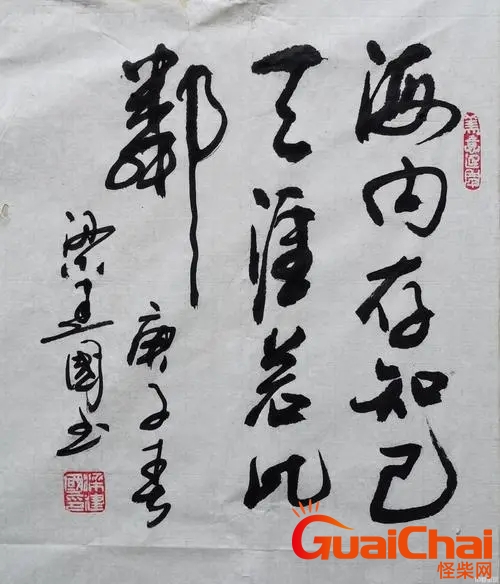 海内存知己
天涯若比
鄰
庚子春
梁建國书
梁建國印
GuaiChai
怪柴网